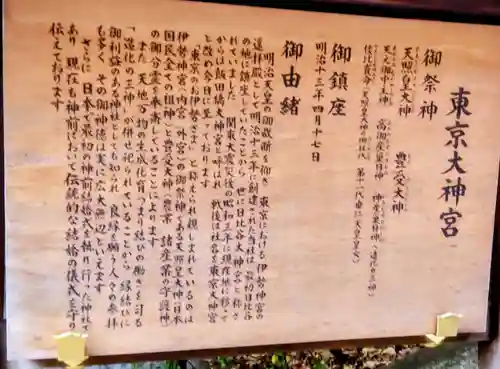 東京大神宮
御祭神
天照皇大神　豊受大神
天之御中主神　高御産巣日神　神産巣日神（造化の三神）
倭比賣命
御鎮座
明治十三年四月十七日
御由緒
明治天皇の御裁断を仰ぎ 東京における伊勢神宮の
遥拝殿として明治十三年に創建された当社は 最初日比谷
の地に鎮座していたことから 世に日比谷大神宮と称さ
れていました 関東大震災後の昭和三年に現在地に移って
からは飯田橋大神宮と呼ばれ 戦後は社名を東京大神宮
と改め今日に至っております
「東京のお伊勢さま」と称えられ親しまれているのは
伊勢神宮（内宮と外宮）の御祭神である天照皇大神（日本
国民全体の総祖神）と豊受大神（農業 諸産業の守護神）
の御分霊を奉斎していることによります
また 天地万物の生成化育つまり結びの働きを司る
「造化の三神」が併せ祀られていることから 縁結びに
御利益のある神社としても知られ 良縁を願う人々の参拝
も多く その御神徳は実に広大無辺といえます
さらに 日本で最初の神前結婚式を執り行った神社で
あり 現在も神前において伝統的な結婚の儀式を守り
伝えております